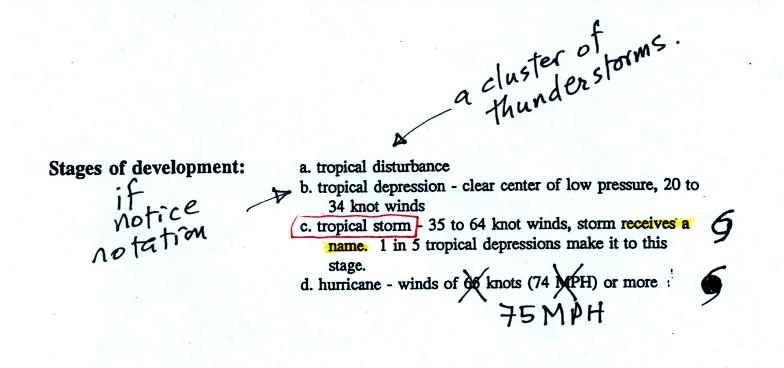 a cluster of
thunderstorms.
Stages of development:
if
notice
notation
a. tropical disturbance
b. tropical depression - clear center of low pressure, 20 to
34 knot winds
c. tropical storm - 35 to 64 knot winds, storm receives a
name. 1 in 5 tropical depressions make it to this
stage.
d. hurricane - winds of 65 knots (74 MPH) or more
75 MPH